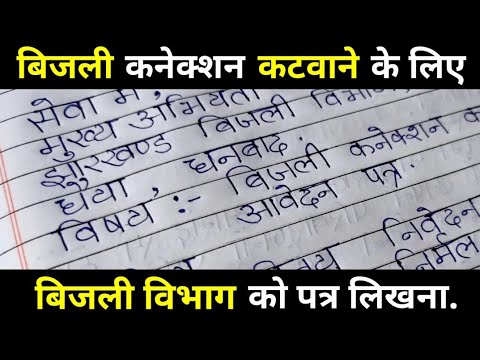 बिजली कनेक्शन कटवाने के लिए
सेवा में,
मुख्य अभियंता
झारखण्ड बिजली विभाग,
धनबाद.
विषय :- बिजली कनेक्शन
आवेदन पत्र.
निवेदन
बिजली विभाग को पत्र लिखना.